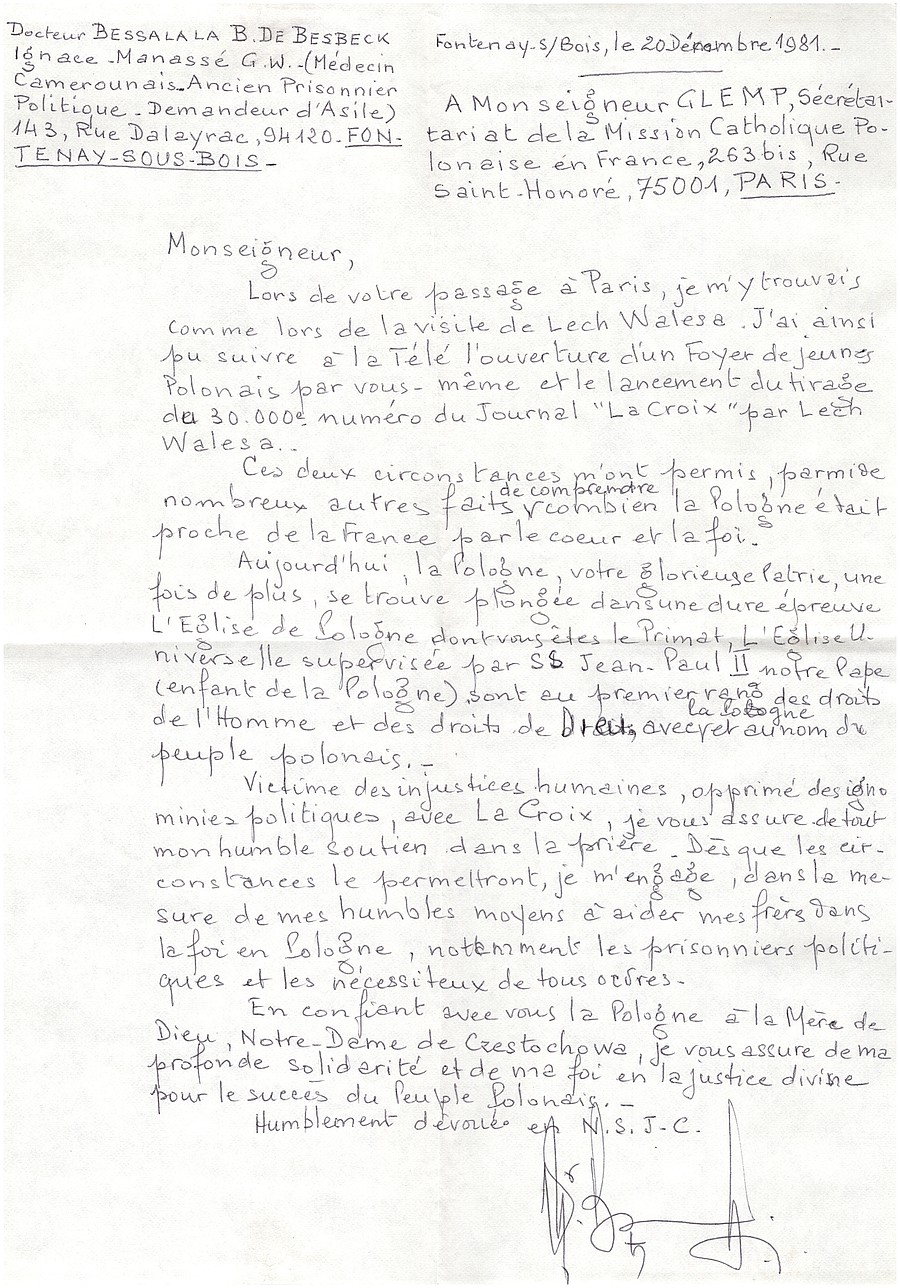 Docteur BESSALA LA B. DE BESBECK
Ignace-Manassé G.W.-(Médecin
Camerounais-Ancien Prisonnier
Politique-Demandeur d'Asile)
143, Rue Dalayrac, 94120-FON-
TENAY-SOUS-BOIS-
Fontenay-s/Bois, le 20 Décembre 1981.-
A Monseigneur GLEMP, Sécréta-
riat de la Mission Catholique Po-
lonaise en France, 263 bis, Rue
Saint-Honoré, 75001, PARIS-
Monseigneur,
Lors de votre passage à Paris, je m'y trouvais
comme lors de la visite de Lech Walesa. J'ai ainsi
pu suivre à la Télé l'ouverture d'un Foyer de jeunes
Polonais par vous-même et le lancement du tirage
du 30.000e numéro du Journal "La Croix" par Lech
Walesa..
Ces deux circonstances m'ont permis, parmi de
nombreux autres faits de comprendre combien la Pologne était
proche de la France par le coeur et la foi.-
Aujourd'hui, la Pologne, votre glorieuse Patrie, une
fois de plus, se trouve plongée dans une dure épreuve
L'Eglise de Pologne dont vous êtes le Primat, L'Eglise U-
niverselle supervisée par SS Jean-Paul II notre Pape
(enfant de la Pologne), sont au premier rang des droits
de l'Homme et des droits de avec la Pologne et au nom du
peuple polonais.-
Victime des injustices humaines, opprimé des igno
minies politiques, avec La Croix, je vous assure de tout
mon humble soutien dans la prière-Dès que les cir-
constances le permettront, je m'engage, dans la me-
sure de mes humbles moyens à aider mes frères dans
la foi en Pologne, notamment les prisonniers politi-
ques et les nécessiteux de tous ordres.
En confiant avec vous la Pologne à la Mère de
Dieu, Notre-Dame de Czestochowa, je vous assure de ma
profonde solidarité et de ma foi en la justice divine
pour le succès du Peuple Polonais.-
Humblement dévoué en N.S.J-C.